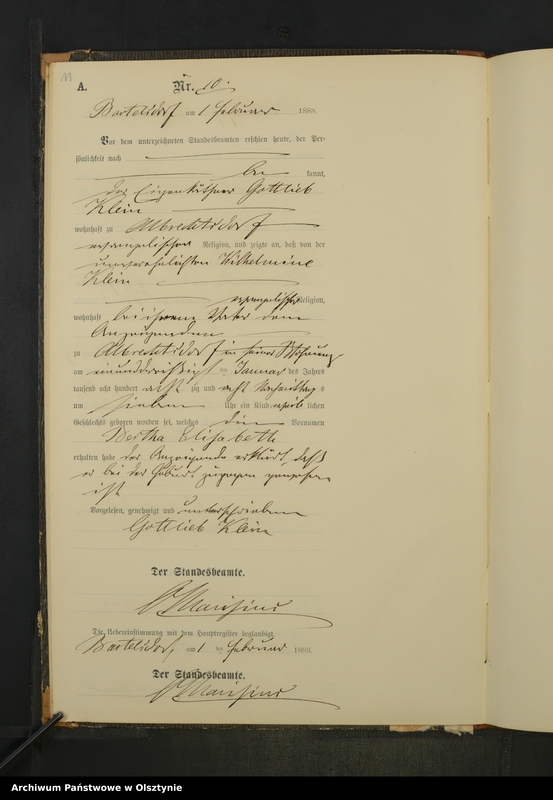 11
A.
Nr. 10.
Bartelsdorf am 1 Februar 1888.
Vor dem unterzeichneten Standesbeamten erschien heute, der Per-
sönlichkeit nach
be kannt,
der Eigenkäthner Gottlieb
Klein
wohnhaft zu Albrechtsdorf
evangelischer Religion, und zeigte an, daß von der
unverehelichten Wilhelmine
Klein
evangelischer Religion,
wohnhaft bei ihrem Vater dem
Anzeigenden
zu Albrechtsdorf in seiner Wohnung
am einunddreißigsten Januar des Jahres
tausend acht hundert acht zig und acht Nachmittags
um sieben Uhr ein Kind weib lichen
Geschlechts geboren worden sei, welches die Vornamen
Bertha Elisabeth
erhalten habe der Anzeigende erklärt, daß
er bei der Geburt zugegen gewesen
ist
Vorgelesen, genehmigt und unterschrieben
Gottlieb Klein
Der Standesbeamte.
Die Uebereinstimmung mit dem Hauptregister beglaubigt.
Bartelsdorf, am 1 ten Februar 1888.
Der Standesbeamte.
Archiwum Państwowe w Olsztynie